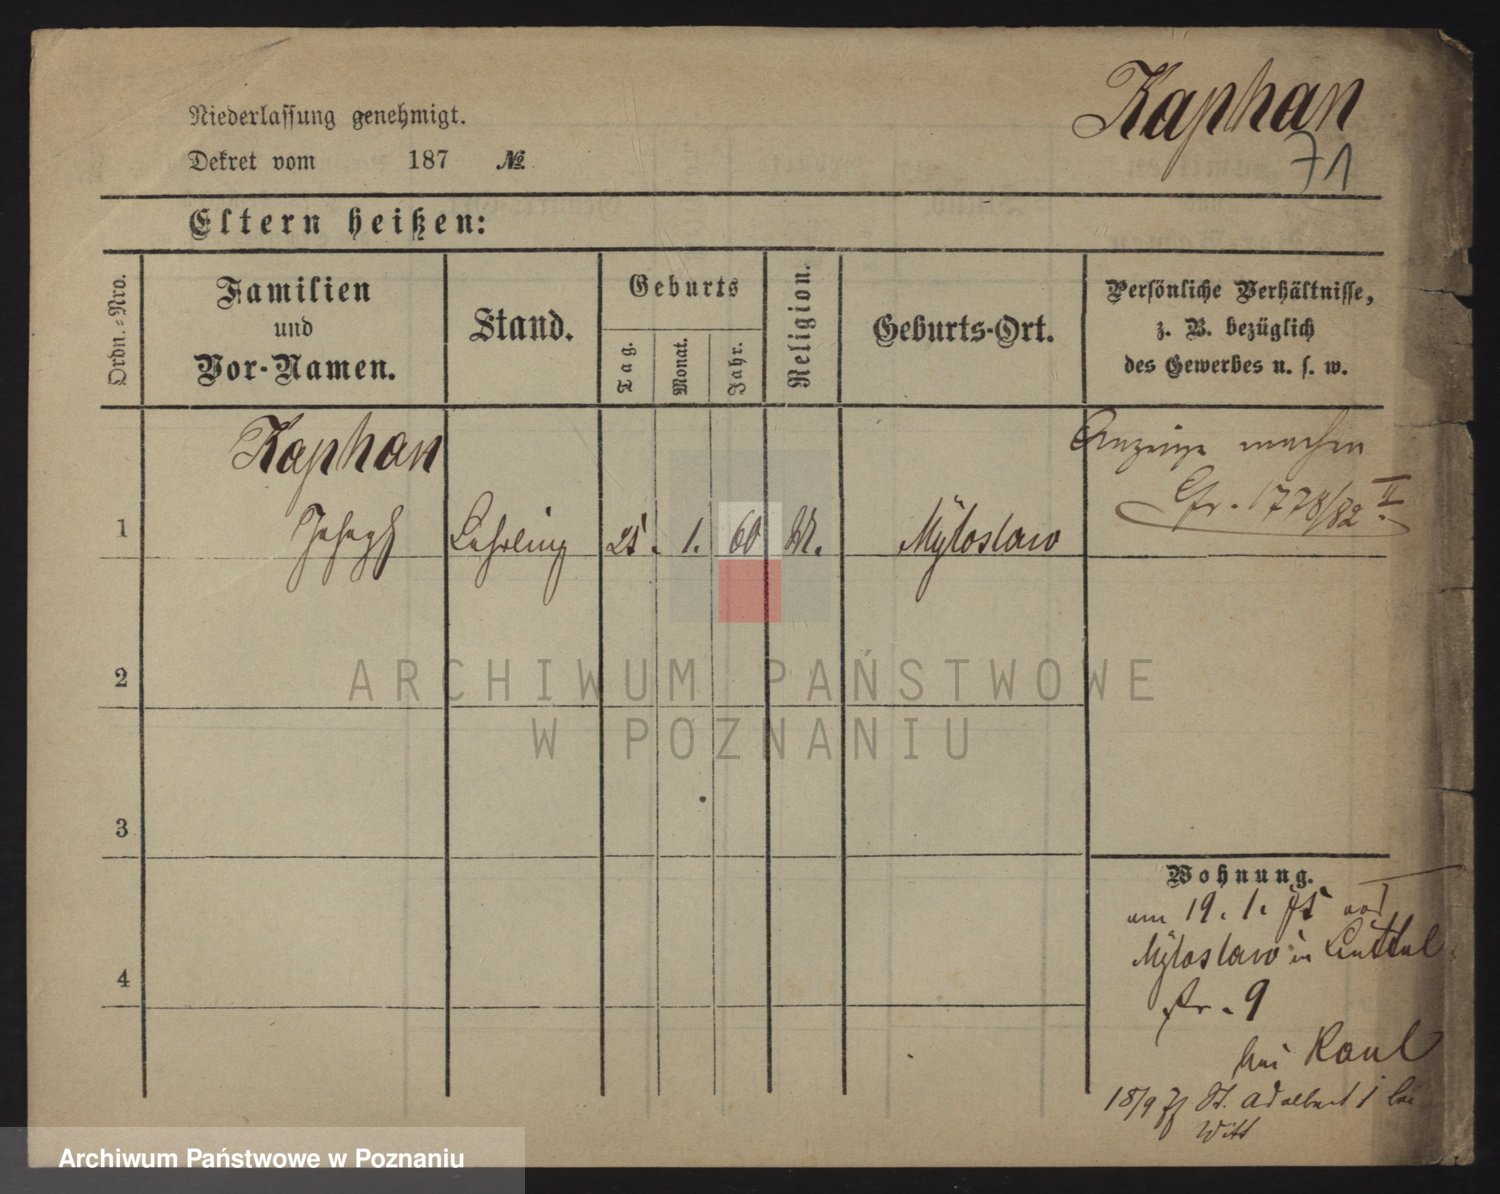 Kaphan
71
Niederlassung genehmigt.
Dekret vom 187 №
Eltern heißen:
Ordn.=Nro.
Familien
und
Vor-Namen.
Stand.
Geburts
Tag.
Monat.
Jahr.
Religion.
Geburts-Ort.
Persönliche Verhältnisse,
z. B. bezüglich
des Gewerbes u. s. w.
Kaphan
1 Joseph Lehrling 25. 1. 60 M. Mÿloslaw
Anzeige machen
1778/82 II.
2
3
4
ARCHIWUM PAŃSTWOWE
W POZNANIU
Wohnung.
am 19. 1. 75 von
Mÿloslaw in
Str. 9
bei Raul
18/9 St. Adalbert 1 bei
Witt
Archiwum Państwowe w Poznaniu